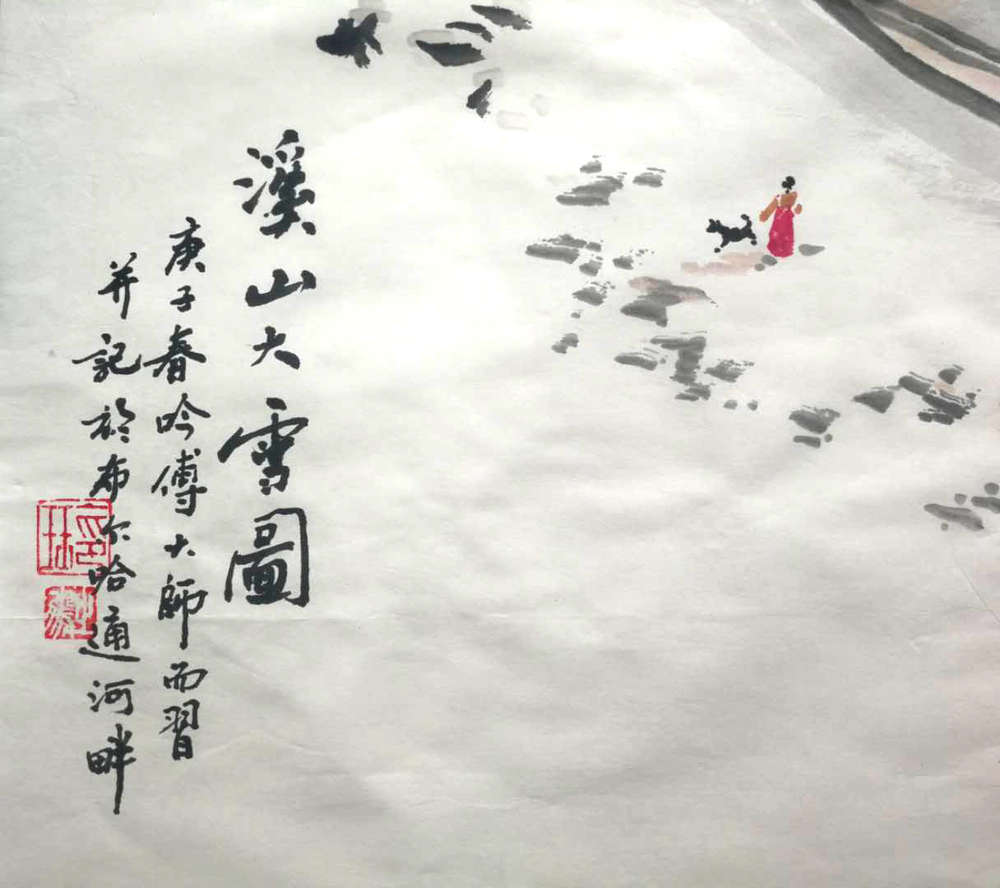 溪山大雪圖
庚子春吟傅大師而習
并記於布尔哈通河畔